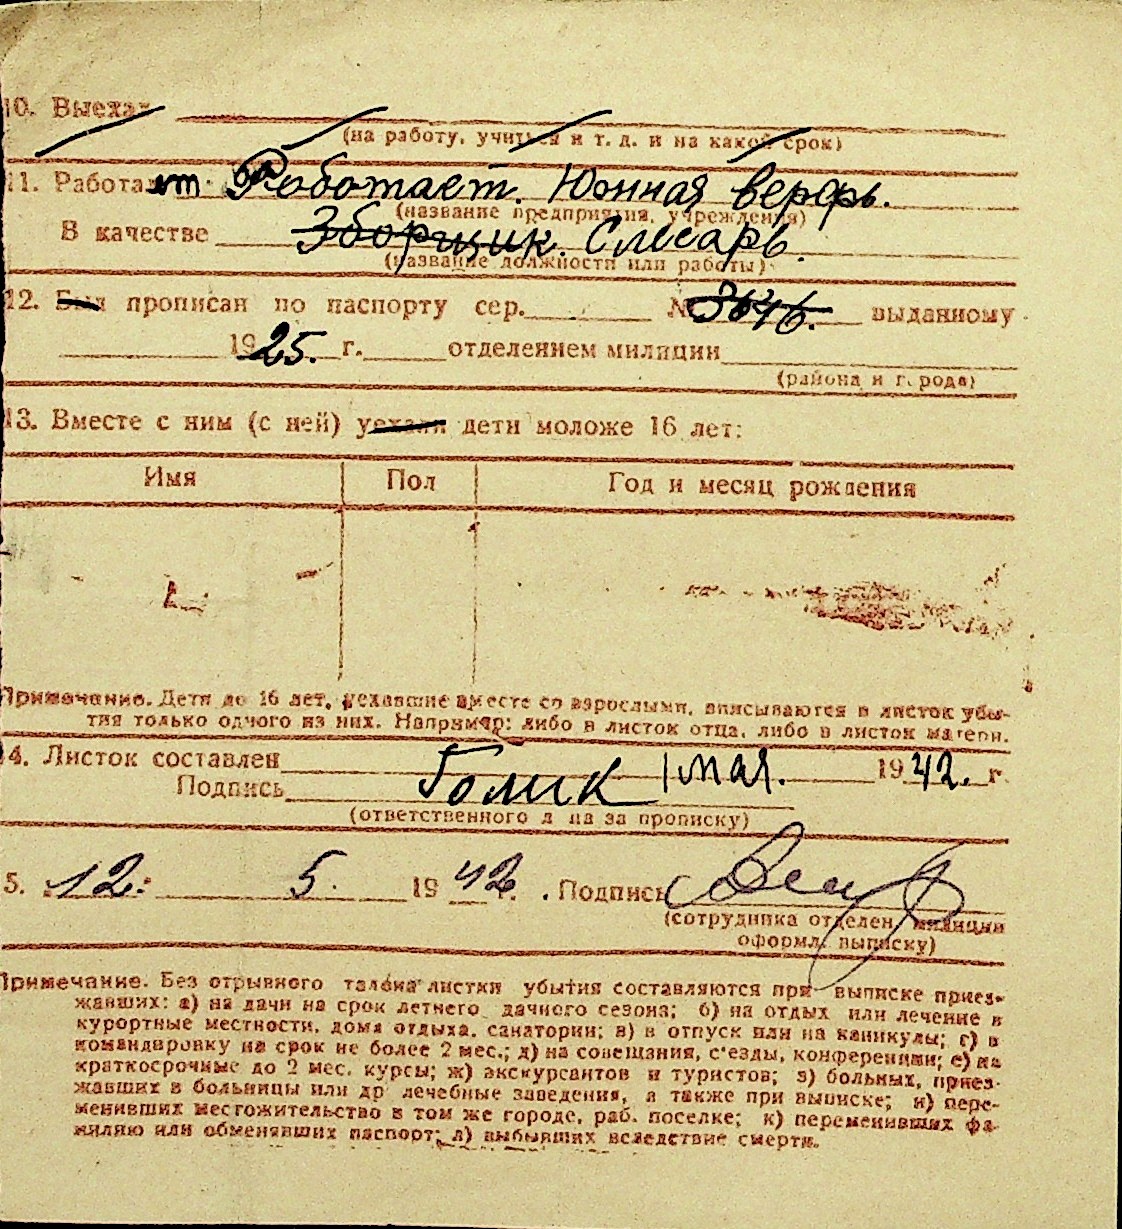 10. Выехал
(на работу, учиться и т. д. и на какой срок)
11. Работает Работает. Южная верфь.
(название предприятия, учреждения)
В качестве Зборщик. Слесарь.
(название должности или работы)
12. Был прописан по паспорту сер. № 3646. выданному
1925. г. отделением милиции
(района и города)
13. Вместе с ним (с ней) уехали дети моложе 16 лет:
Имя Пол Год и месяц рождения
Примечание. Дети до 16 лет, уехавшие вместе со взрослыми, вписываются в листок убы-
тия только одного из них. Например: либо в листок отца, либо в листок матери.
14. Листок составлен 1 мая. 1942. г.
Подпись Голик
(ответственного л на за прописку)
5. 12. 5. 1942 г. Подпись
(сотрудника отделен. милиции
оформл. выписку)
Примечание. Без отрывного талона листки убытия составляются при выписке приез-
жавших: а) на дачи на срок летнего дачного сезона; б) на отдых или лечение в
курортные местности, дома отдыха, санатории; в) в отпуск или на каникулы; г) в
командировку на срок не более 2 мес.; д) на совещания, с'езды, конференции; е) на
краткосрочные до 2 мес. курсы; ж) экскурсантов и туристов; з) больных, приез-
жавших в больницы или др лечебные заведения, а также при выписке; и) пере-
менивших местожительство в том же городе, раб. поселке; к) переменивших фа-
милию или обменявших паспорт; л) выбывших вследствие смерти.